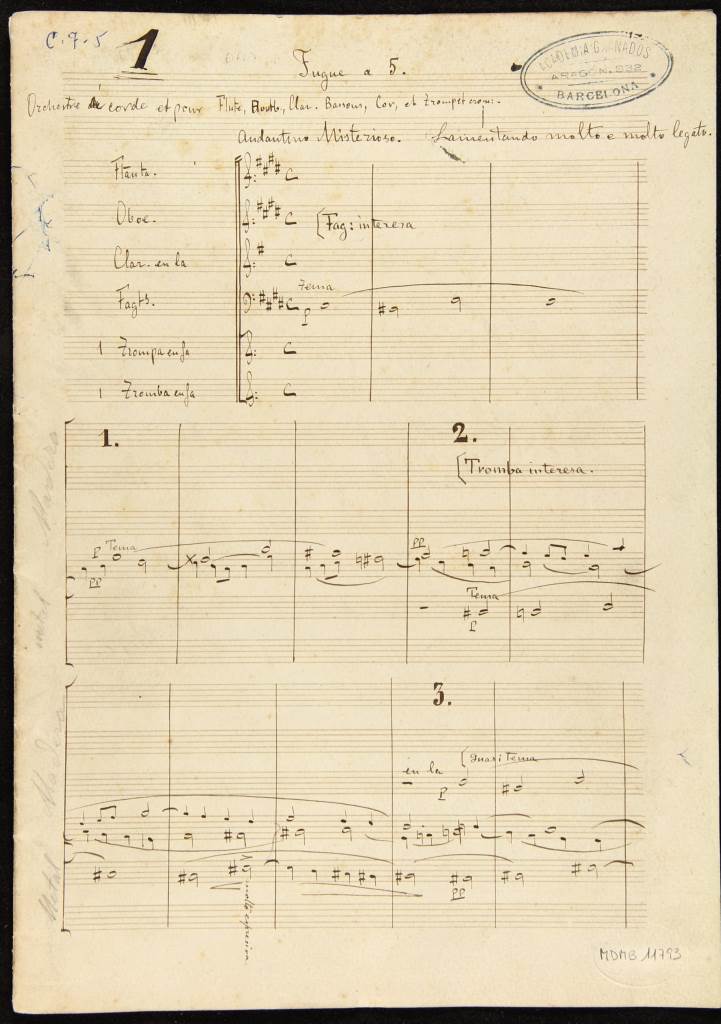 C-7-5
1
Fugue a 5.
ACADEMIA GRANADOS
BARCELONA
Orchestre de corde et pour Flute, Hautb, Clar. Bassons, Cor, et Trompet
Andantino Misterioso. Lamentando molto e molto legato.
Flauta.
Oboe.
Fag: interesa
Clar. en la
Fagts.
Tema
p
1 Trompa en fa
1 Tromba en fa
1.
2.
Tromba interesa.
p Tema
pp
pp
Tema
p
3.
en la
quasi tema
p
pp
molto espresivo
Metal Madera metal Madera
MDMB 11793